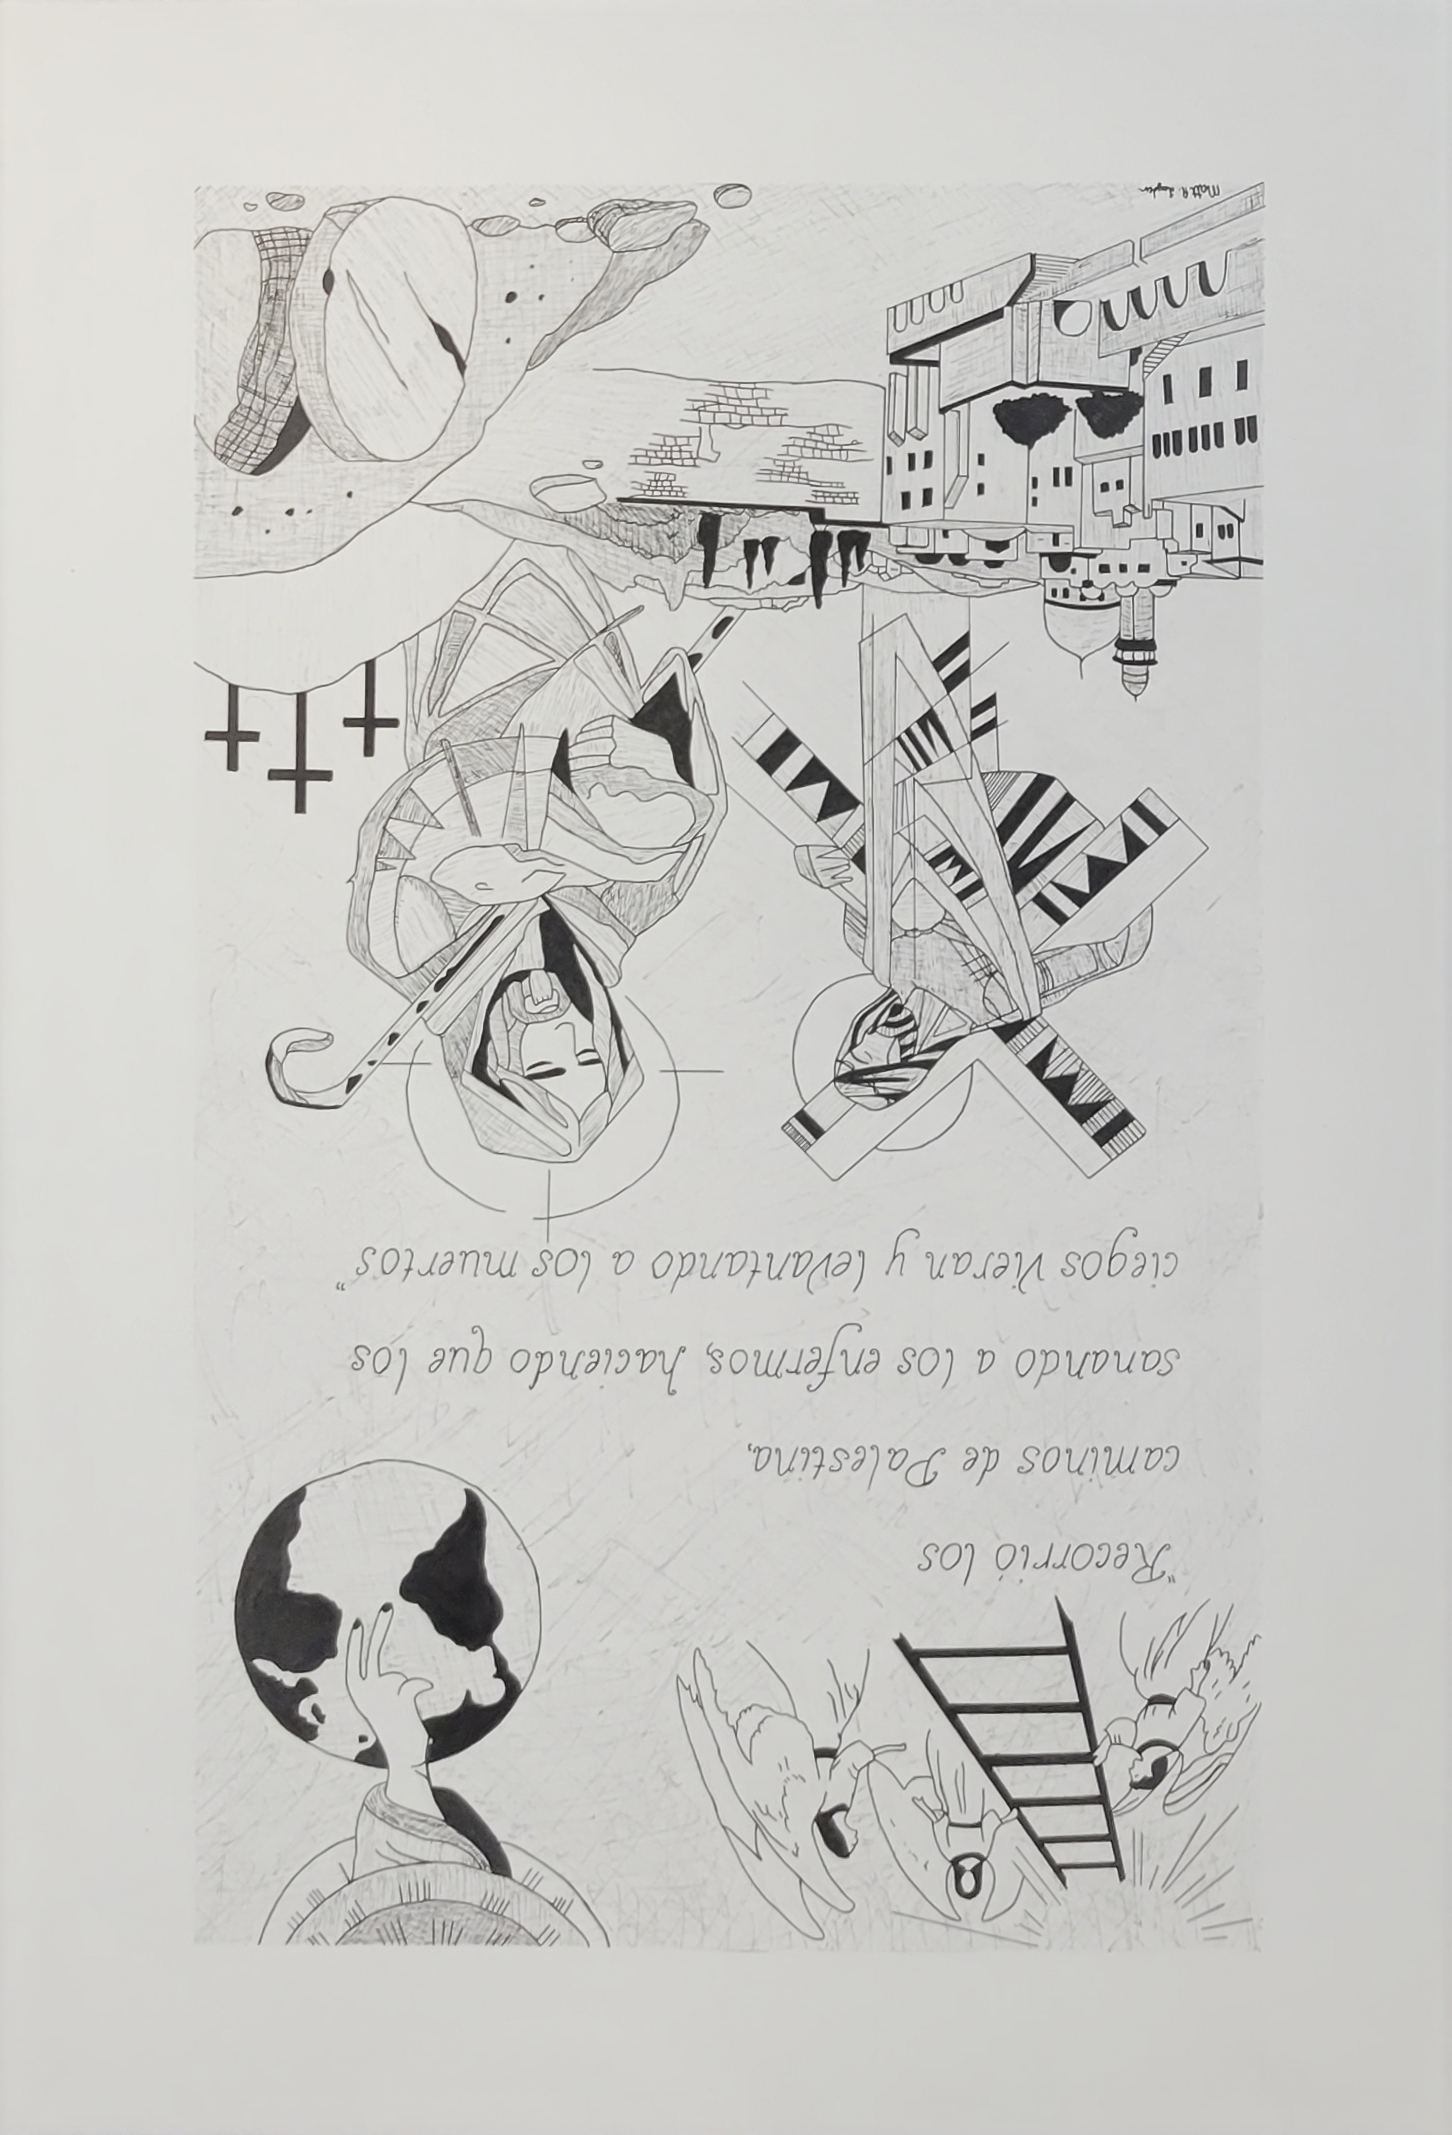 "Recorrió los
caminos de Palestina,
sanando a los enfermos, haciendo que los
ciegos vieran y levantando a los muertos"
Matt R.